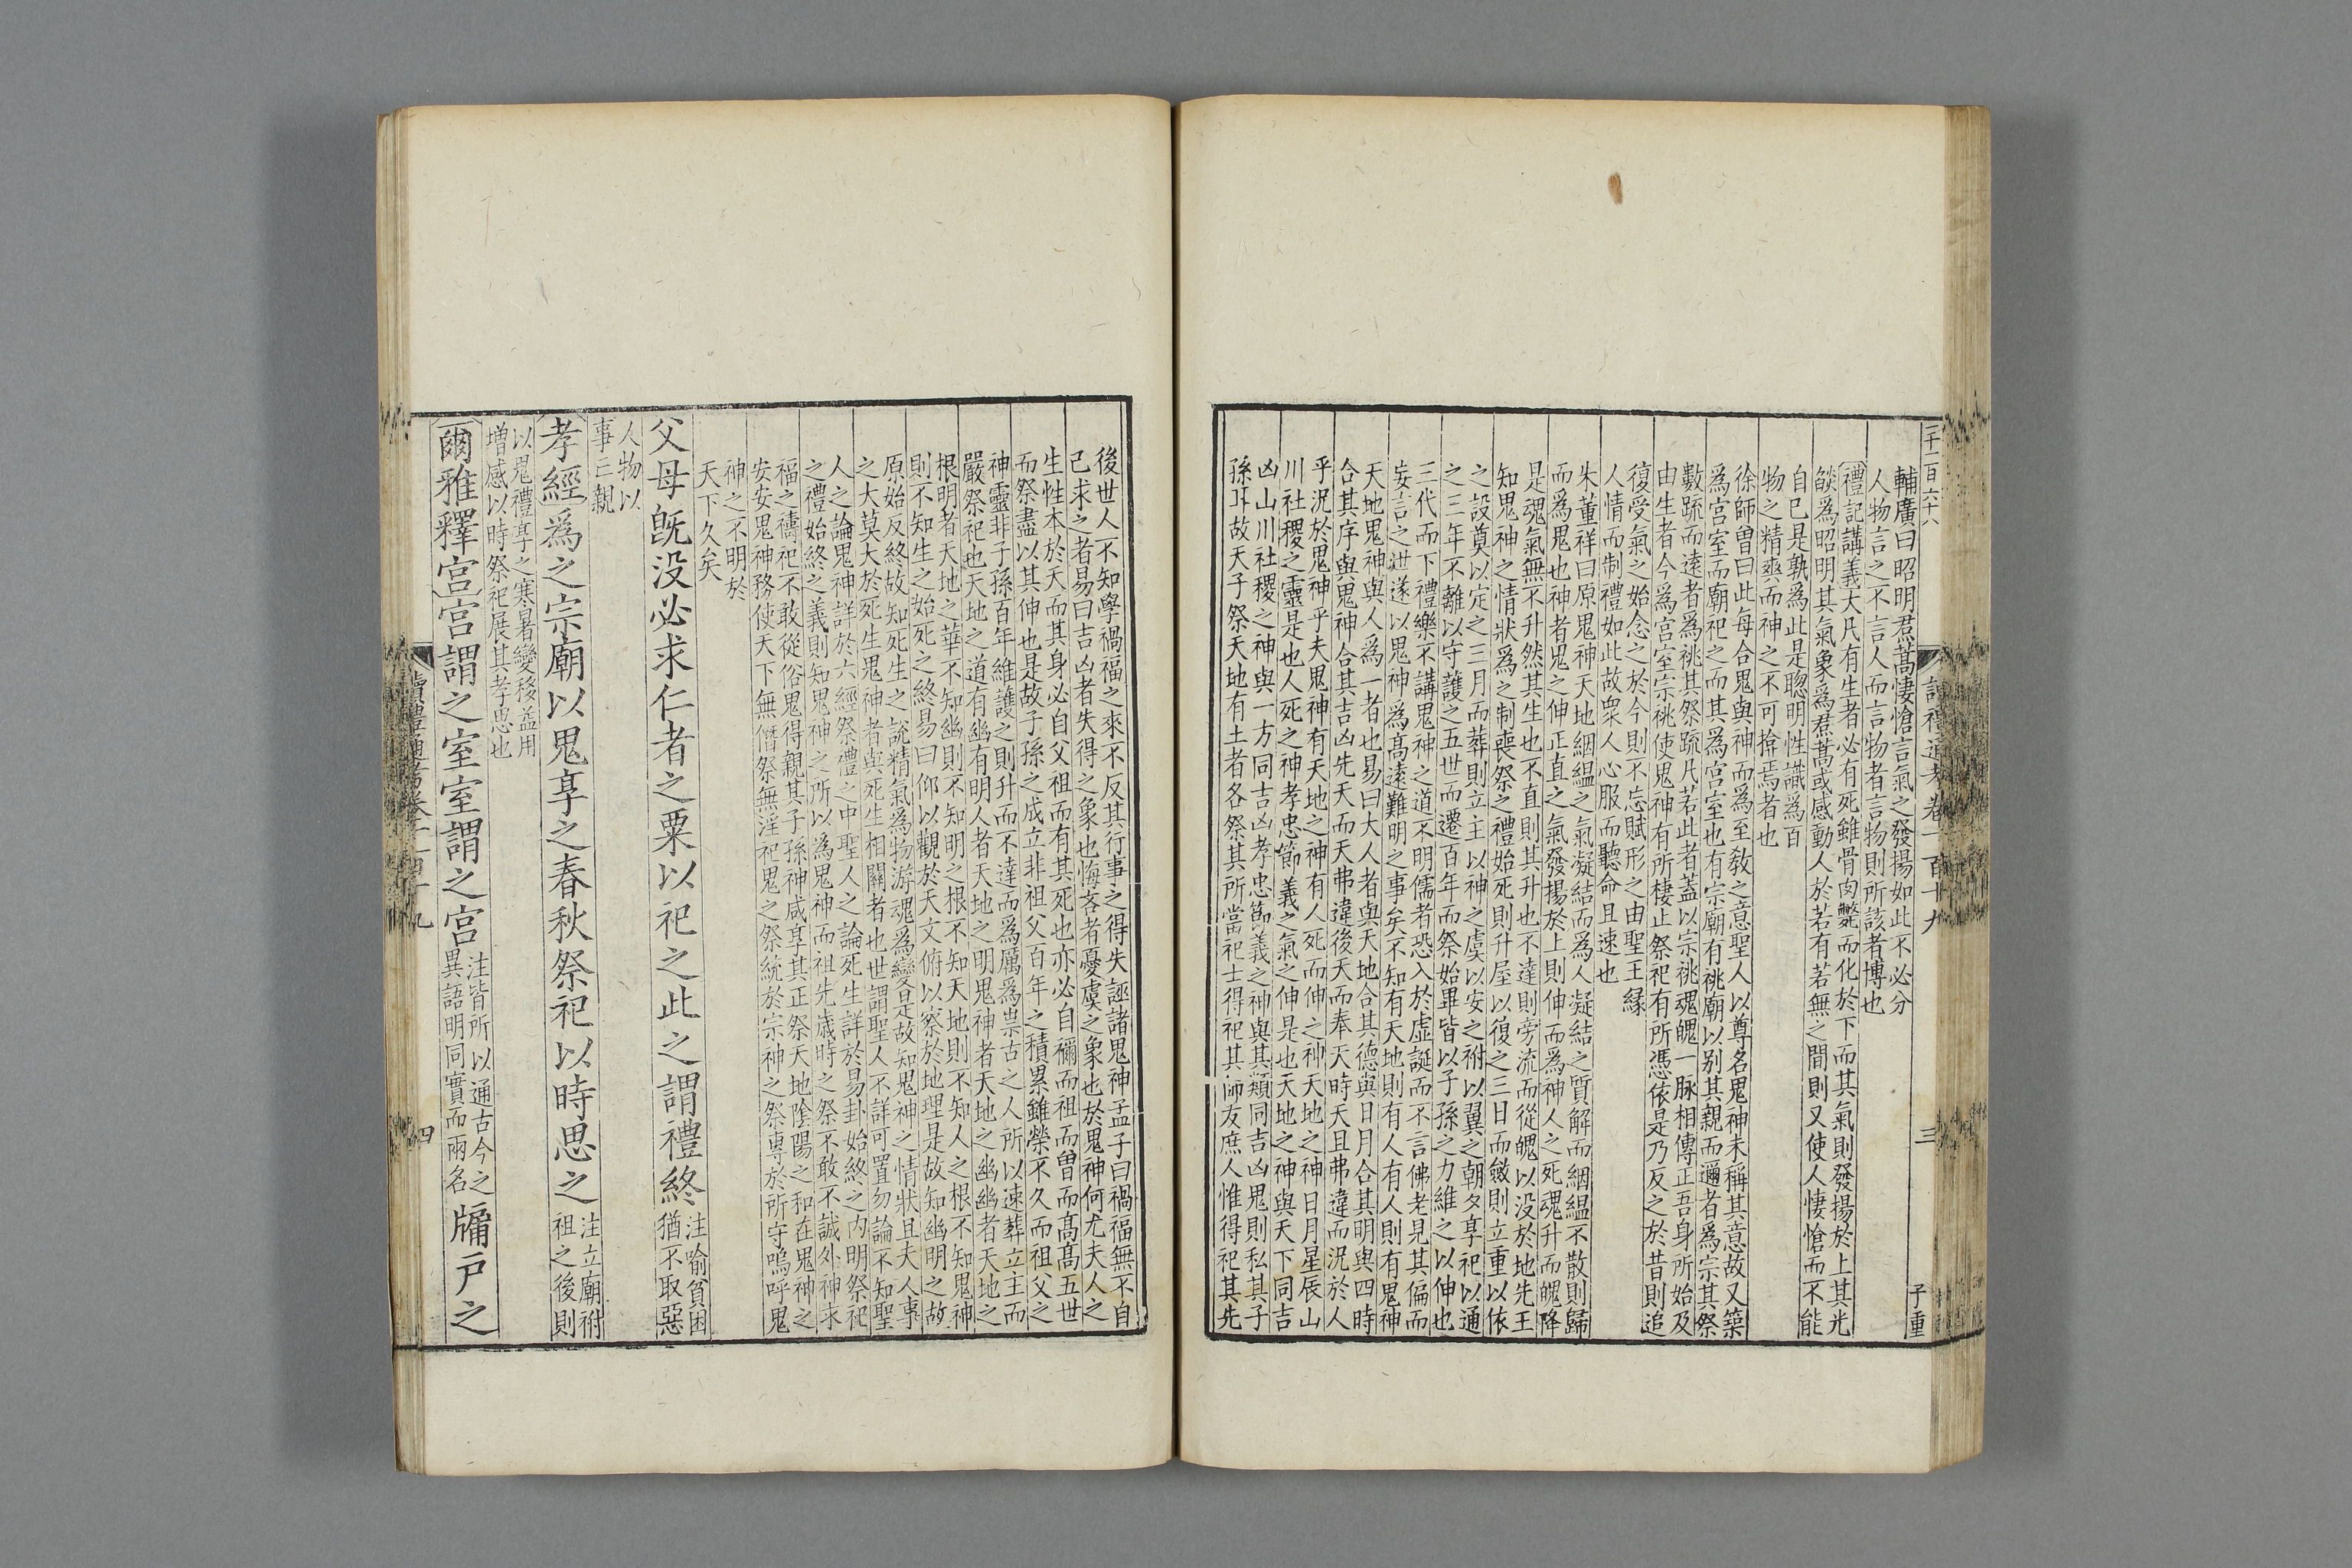 輔廣曰昭明焄蒿悽愴言氣之發揚如此不必分
人物言之不言人而言物者言物則所該者博也
禮記講義大凡有生者必有死雖骨肉斃而化於下而其氣則發揚於上其光
燄爲昭明其氣象爲焄蒿或感動人於若有若無之間則又使人悽愴而不能
自已是孰為此是聰明性識為百
物之精爽而神之不可揜焉者也
徐師曾曰此毎合鬼與神而爲至敎之意聖人以尊名鬼神未稱其意故又築
爲宮室而廟祀之而其爲宮室也有宗廟有祧廟以别其親而邇者爲宗其祭
數疏而遠者為祧其祭疏凡若此者蓋以宗祧魂魄一脉相傳正吾身所始及
由生者今為宮室宗祧使鬼神有所棲止祭祀有所憑依是乃反之於昔則追
復受氣之始念之於今則不忘賦形之由聖王緣
人情而制禮如此故衆人心服而聽命且速也
朱董祥曰原鬼神天地絪緼之氣凝結而為人凝結之質解而絪緼不散則歸
而爲鬼也神者鬼之伸正直之氣發揚於上則伸而爲神人之死魂升而魄降
是魂氣無不升然其生也不直則其升也不達則旁流而從魄以没於地先王
知鬼神之情狀爲之制喪祭之禮始死則升屋以復之三日而斂則立重以依
之設奠以定之三月而葬則立主以神之虞以安之祔以翼之朝夕享祀以通
之三年不離以守護之五世而遷百年而祭始畢皆以子孫之力維之以伸也
三代而下禮樂不講鬼神之道不明儒者恐入於虛誕而不言佛老見其偏而
妄言之世遂以鬼神為髙遠難明之事矣不知有天地則有人有人則有鬼神
天地鬼神與人爲一者也易曰大人者與天地合其德與日月合其明與四時
合其序與鬼神合其吉凶先天而天弗違後天而奉天時天且弗違而況於人
乎況於鬼神乎夫鬼神有天地之神有人死而伸之神天地之神日月星辰山
川社稷之靈是也人死之神孝忠節義之氣之伸是也天地之神與天下同吉
凶山川社稷之神與一方同吉凶孝忠節義之神與其類同吉凶鬼則私其子
孫耳故天子祭天地有土者各祭其所當祀士得祀其師友庶人惟得祀其先
二千二百六十八
讀禮通考卷一百十九
三
子重
後世人不知學禍福之來不反其行事之得失誣諸鬼神孟子曰禍福無不自
己求之者易曰吉凶者失得之象也悔吝者憂虞之象也於鬼神何尤夫人之
生性本於天而其身必自父祖而有其死也亦必自禰而祖而曽而髙髙五世
而祭盡以其伸也是故子孫之成立非祖父百年之積累雖榮不久而祖父之
神靈非子孫百年維護之則升而不達而爲厲爲祟古之人所以速葬立主而
嚴祭祀也天地之道有幽有明人者天地之明鬼神者天地之幽幽者天地之
根明者天地之華不知幽則不知明之根不知天地則不知人之根不知鬼神
則不知生之始死之終易曰仰以觀於天文俯以察於地理是故知幽明之故
原始反終故知死生之說精氣為物游魂爲變是故知鬼神之情狀且夫人事
之大莫大於死生鬼神者與死生相關者也世謂聖人不詳可置勿論不知聖
人之論鬼神詳於六經祭禮之中聖人之論死生詳於易卦始終之内明祭祀
之禮始終之義則知鬼神之所以為鬼神而祖先歳時之祭不敢不誠外神求
福之禱祀不敢從俗鬼得親其子孫神咸享其正祭天地陰陽之和在鬼神之
安安鬼神務使天下無僭祭無淫祀鬼之祭統於宗神之祭專於所守嗚呼鬼
神之不明於
天下久矣
父母旣没必求仁者之粟以祀之此之謂禮終
注喻貧困
猶不取惡
人物以
事亡親
孝經爲之宗廟以鬼享之春秋祭祀以時思之
注立廟祔
祖之後則
以鬼禮享之寒暑變移益用
增感以時祭祀展其孝思也
爾雅釋宮宮謂之室室謂之宮
注皆所以通古今之
異語明同實而兩名
牖戸之
讀禮通考卷一百十九
四